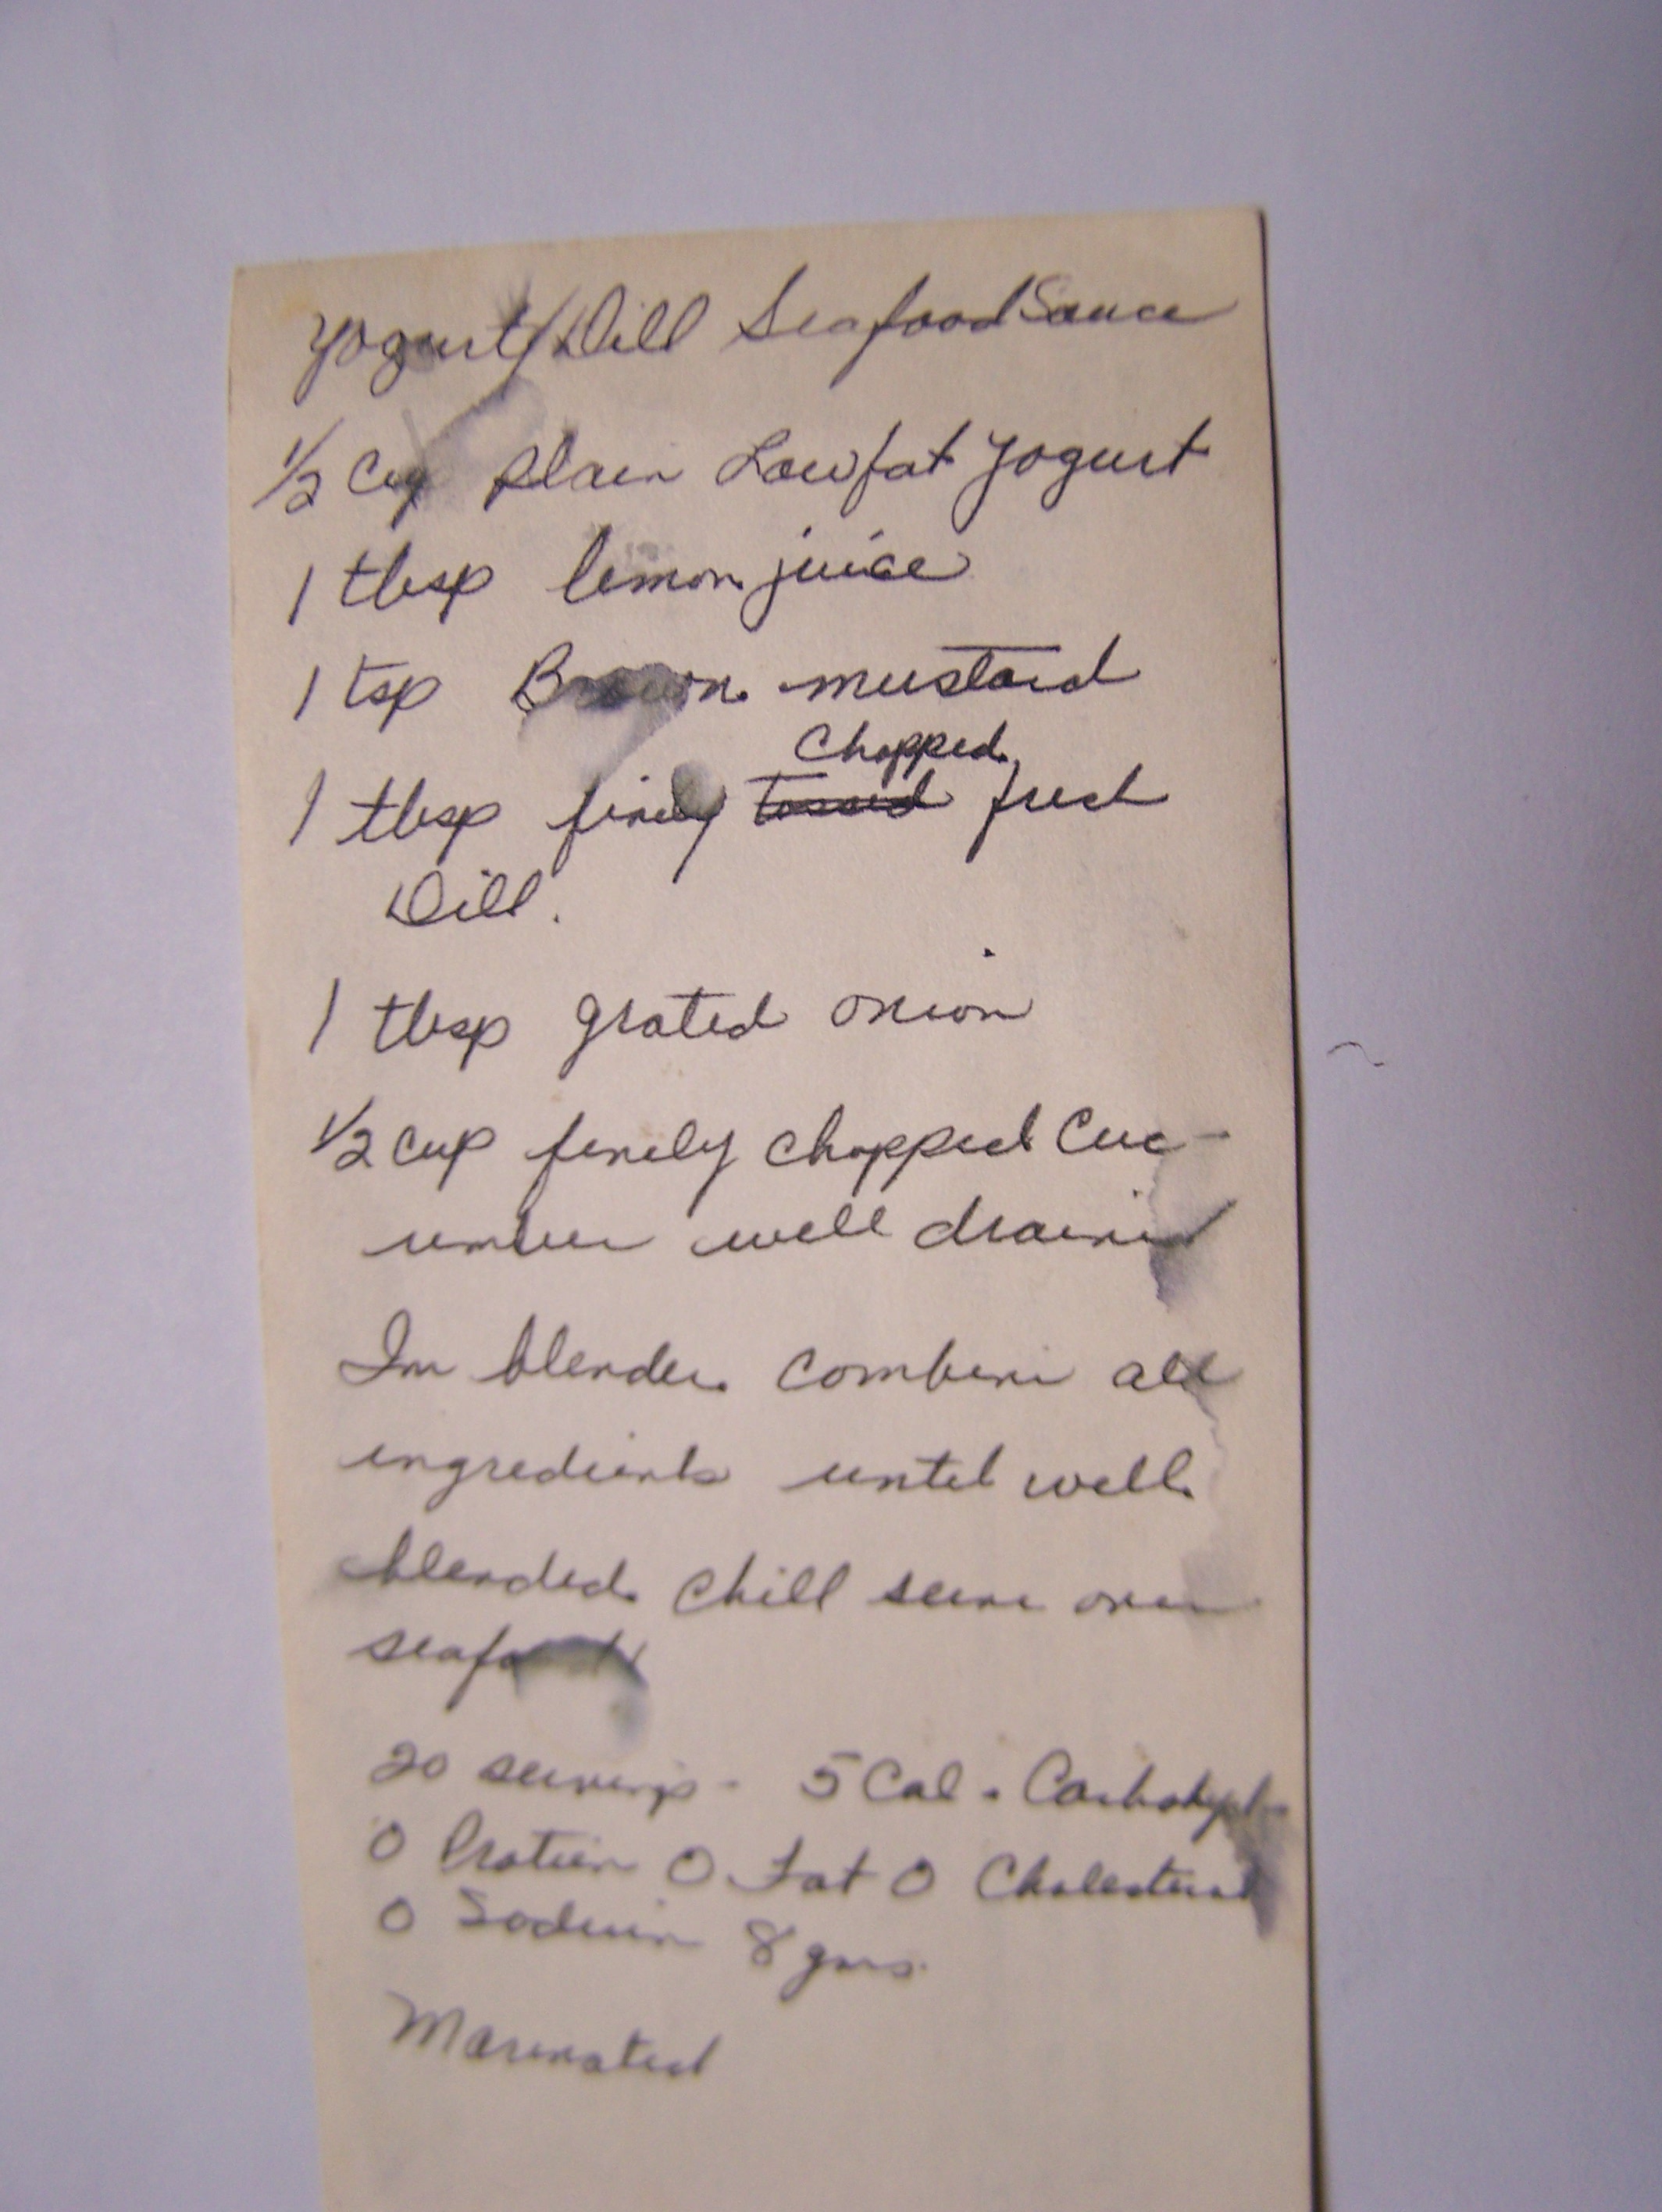 Yogurt/Dill Seafood Sauce
1/2 Cup plain Lowfat Yogurt
1 tbsp lemon juice
1 tsp Brown mustard
Chopped
1 tbsp finely fresh
Dill.
1 tbsp grated onion
1/2 cup finely chopped Cuc-
umber well drained
In blender combine all
ingredients until well
blended chill serve over
seafood
20 servings - 5 Cal. Carbohyd
0 Protien 0 Fat 0 Cholesterol
0 Sodium 8 gms.
Marinated